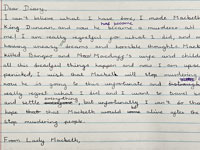 Dear Diary,
I can't believe what I have done, I made Macbeth
King Duncan, and now he became a murderer all
me! I am really regretful for what I did, and
having uneasy dreams and horrible thoughts. Macbeth
killed Banquo and Macduff's wife and child
all this dreadful things happen and now I am
punished, I wish that Macbeth will stop murdering
now he is going to
really regret what I did and I want to
and settle everything, but unfortunatly I can't do th
hope that Macbeth would alive after the
stop murdering people.
From Lady Macbeth,